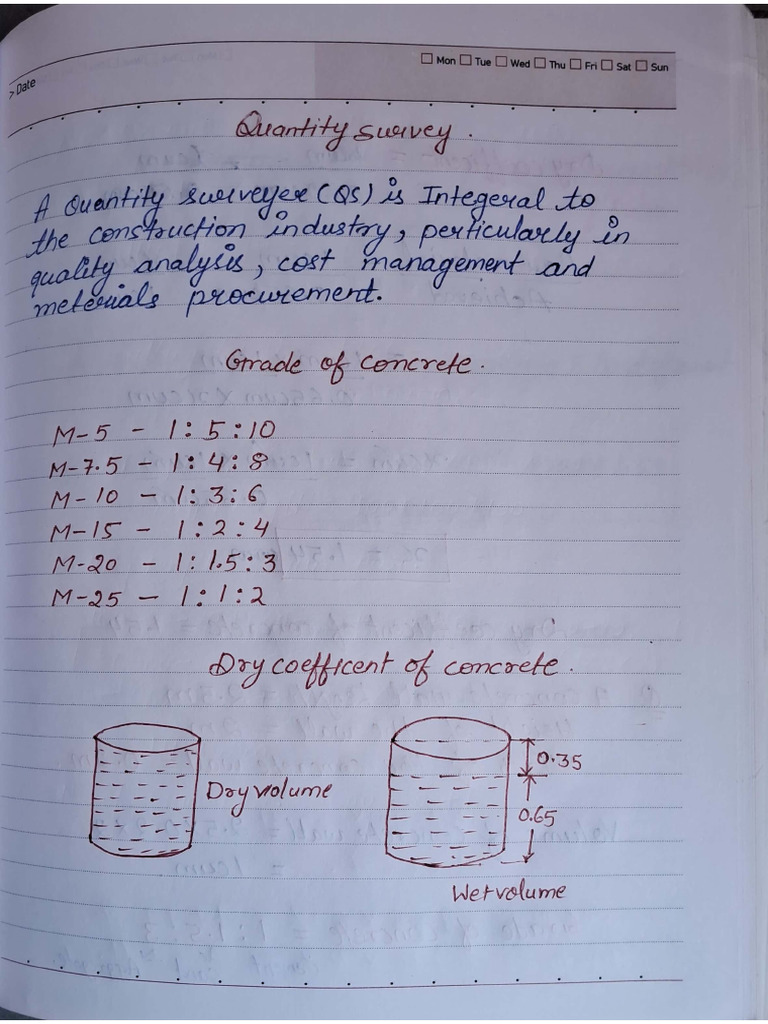 Mon Tue Wed Thu Fri Sat Sun
> Date
Quantity survey.
A Quantity surveyer (QS) is Integeral to
the construction industry, perticularly in
quality analysis, cost management and
meterials procurement.
Grade of concrete.
M-5 - 1:5:10
M-7.5 - 1:4:8
M-10 - 1:3:6
M-15 - 1:2:4
M-20 - 1:1.5:3
M-25 - 1:1:2
Dry coefficent of concrete.
Dry volume
0.35
0.65
Wet volume